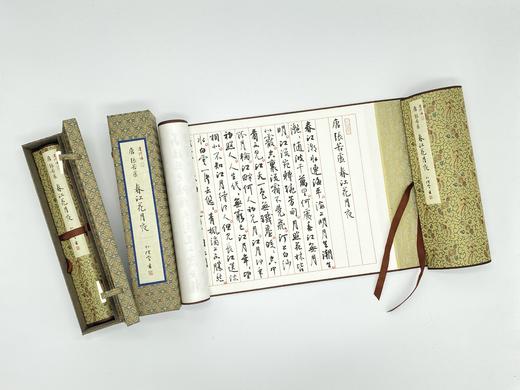 唐張若虛 春江花月夜
春江潮水連海平海上明月共潮生
灩灩隨波千萬里何處春江無月
明江流宛轉繞芳甸月照花林皆
似霰空裏流霜不覺飛汀上白沙
看不見江天一色無纖塵皎皎空中
孤月輪江畔何人初見月江月何年
初照人人生代代無窮已江月年年
相似不知江月待何人但見長江送流
水白雲一片去悠悠青楓浦上不勝愁
唐張若虛 春江花月夜
唐張若虛 春江花月夜
唐張若虛 春江花月夜